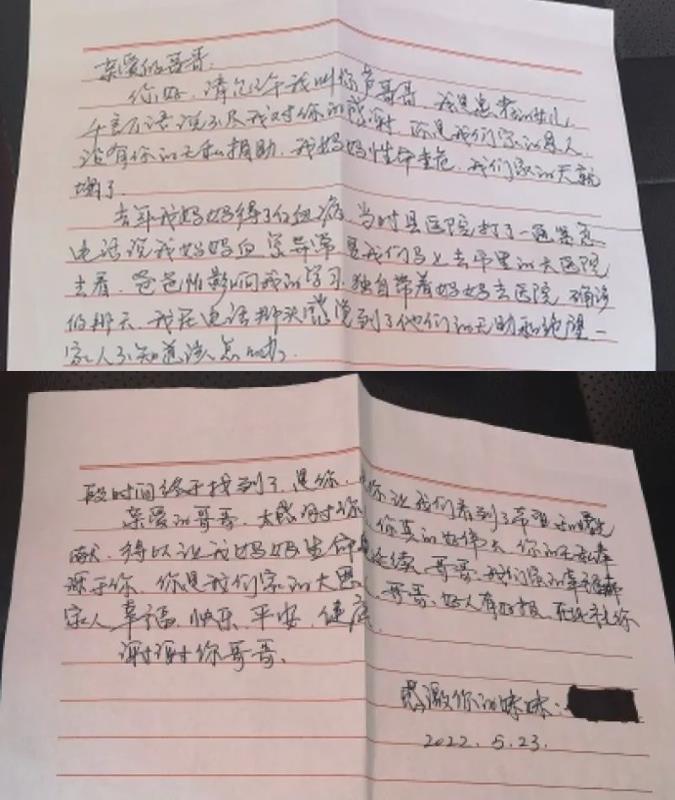 亲爱的哥哥:
你好,请允许我叫你声哥哥,我是患者的女儿,
千言万语说不尽我对你的感谢,你是我们家的恩人,
没有你的无私捐助,我妈妈性命垂危,我们家的天就
塌了.
去年我妈妈得了白血病,当时县医院打了一通紧急
电话说我妈妈血象异常 要我们马上去市里的大医院
去看,爸爸怕影响我的学习,独自带着妈妈去医院,确诊
的那天,我在电话那头感觉到了他们的无助和绝望,一
家人不知道该怎么办.
段时间终于找到了,是你,是你让我们看到了希望的曙光
亲爱的哥哥,太感谢你,你真的好伟大,你的无私奉
献,得以让我妈妈生命延续,哥哥,我们家的幸福都
源于你,你是我们家的大恩人,哥哥,好人有好报,在此祝你
家人幸福,快乐,平安,健康.
谢谢你哥哥.
感激你的妹妹:
2022.5.23.